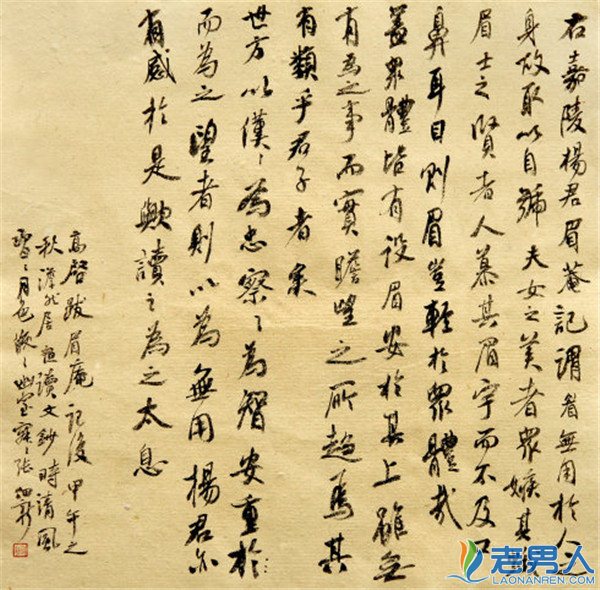 右嘉陵楊君眉菴記謂眉無用於人之
身故取以自號夫女之美者衆嫉其蛾
眉士之賢者人慕其眉宇而不及口
鼻耳目則眉豈輕於衆體哉
蓋衆體皆有設眉安於其上雖無
有為之事而實瞻望之所趨焉其
有類乎君子者矣
世方以僕〻為忠察〻為智安重於
而為之望者則以為無用楊君亦
有感於是歟讀之為之太息
高啓跋眉庵記後甲午之
秋居讀文鈔時清風
月色張
老男人
LAONANREN.COM